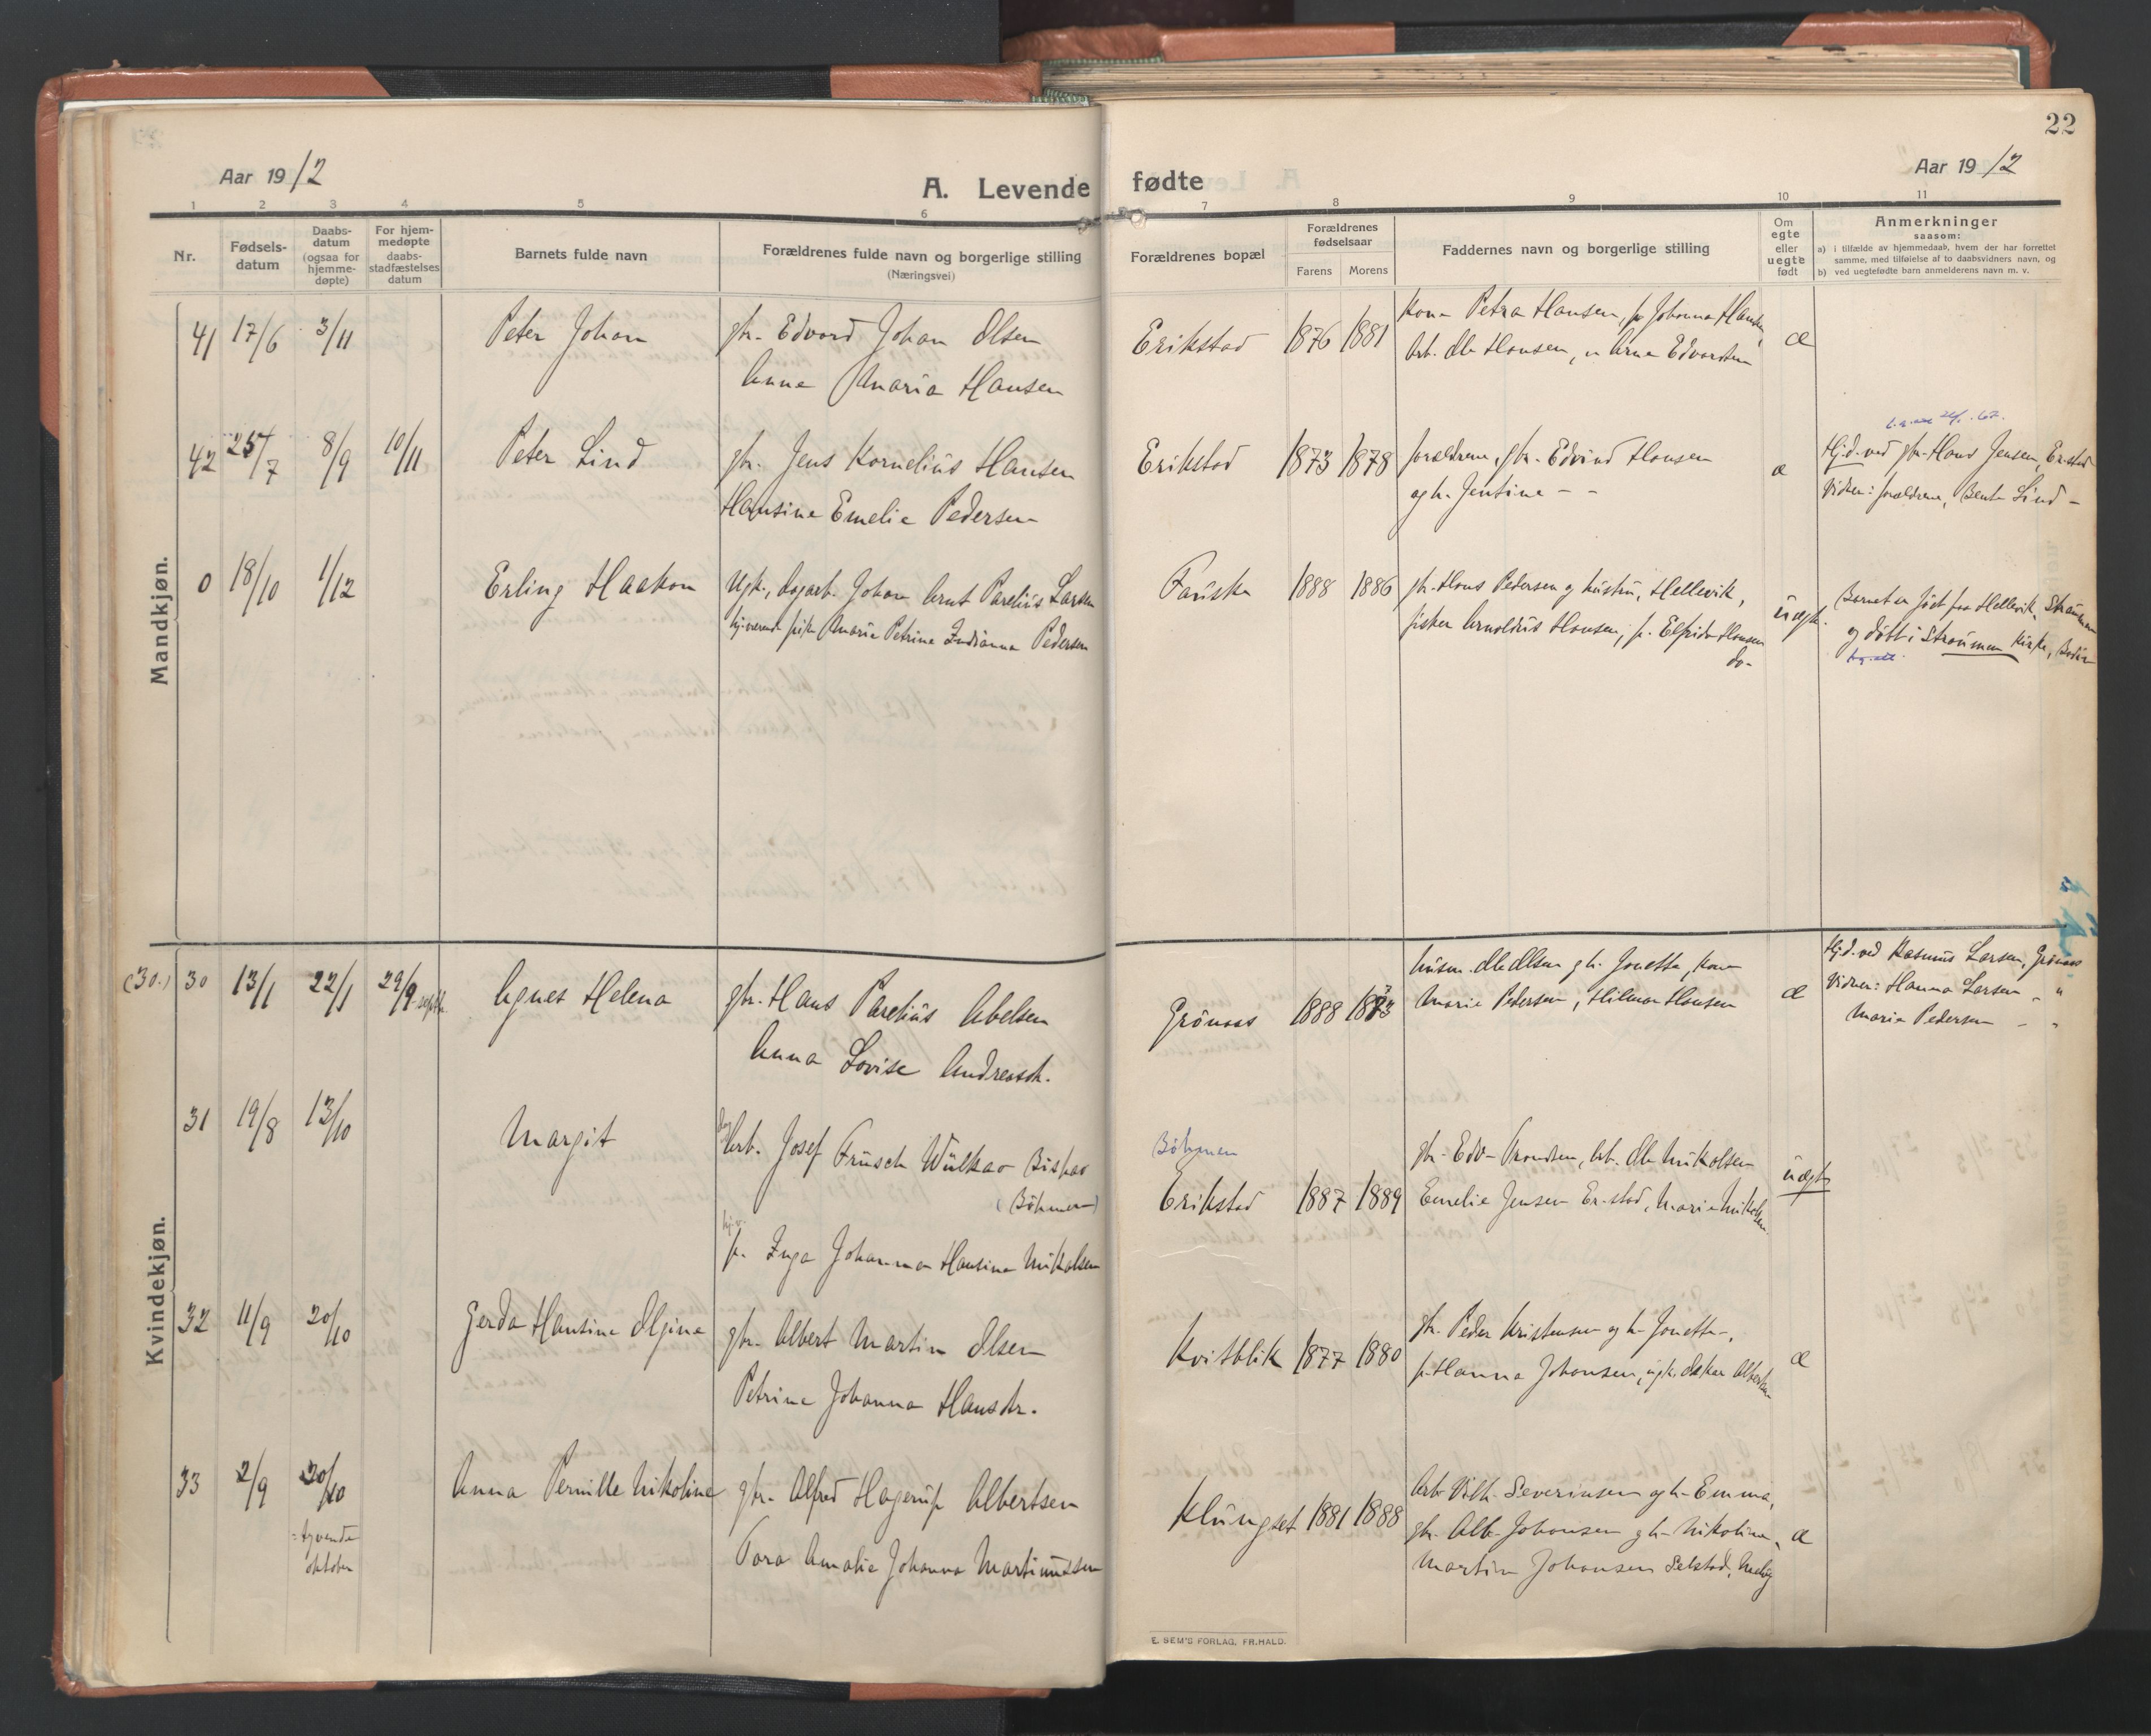 22
Aar 1912
A. Levende fødte
Aar 1912
1 2 3 4 5 6 7 8 9 10 11
Nr.
Fødsels-
datum
Daabs-
datum
(ogsaa for
hjemme-
døpte)
For hjem-
medøpte
daabs-
stadfæstelses
datum
Barnets fulde navn
Forældrenes fulde navn og borgerlige stilling
(Næringsvei)
Forældrenes bopæl
Forældrenes
fødselsaar
Farens Morens
Faddernes navn og borgerlige stilling
Om
egte
eller
uegte
født
Anmerkninger
saasom:
a) i tilfælde av hjemmedaab, hvem der har forrettet
samme, med tilføielse af to daabsvidners navn, og
b) ved uegtefødte barn anmelderens navn m. v.
Mandkjøn.
41 17/6 3/11
Peter Johan
gbr. Edvard Johan Olsen
Anna Maria Hansen
Erikstad 1876 1881
Kone Petra Hansen, p. Johanna Hansen,
Arb. Ole Hansen, u. Arne Edvardsen
æ
42 25/7 8/9 10/11
Peter Lind
gbr. Jens Kornelius Hansen
Hansine Emelie Pedersen
Erikstad 1873 1878
forældrene, gbr. Edvind Hansen
og h. Jentine - -
æ
Hj.d. ved gbr. Hans Jensen, Er.stad
Vidner: forældrene, Bent Lind -
0 18/10 1/12
Erling Haakon
Ugk., dagarb. Johan Arnt Parelius Larsen
hj.værend. pike Maria Petrine Indianna Pedersen
Fauske 1888 1886
gbr. Hans Pedersen og hustru, Hellevik,
fisker Arnoldus Hansen, p. Elfrida Hansen
do-
uægt.
Barnet er født paa Hellevik, Strømmen
og døbt i Straumen Kirke, Bodin
Kvindekjøn.
(30.) 30 13/1 22/1 29/9 septbr.
Agnes Helena
gbr. Hans Parelius Abelsen
Anna Lovise Andreasdtr.
Grønaas 1888 1883
husm. Ole Olsen og h. Jonetta, Kone
Marie Pedersen, Hilmar Hansen
æ
Hj.d. ved Rasmus Larsen, Grønaas
Vidner: Hanna Larsen - "
Maria Pedersen - "
31 19/8 13/10
Margit
dag Arb. Josef Frusch Wülkao Bispao
(Böhmen)
hj.v.
p. Inga Johanna Hansine Mikalsen
Böhmen
Erikstad 1887 1889
gbr. Edv. Trondsen, Arb. Ole Mikalsen
Emelie Jensen Er.stad, Marie Mikalsen
uægte
32 11/9 20/10
Gerda Hansine Olgine
gbr. Albert Martin Olsen
Petrine Johanna Hansdtr.
Kvitblik 1877 1880
gbr. Peder Kristensen og h. Jonetta -,
p. Hanna Johansen, ugk. Oskar Albertsen
æ
33 2/9 20/10
= tyvende
oktober
Anna Pernille Nikoline
gbr. Alfred Hagerup Albertsen
Tora Amalie Johanna Martinussen
Klungset 1881 1888
Arb. Vilh. Severinsen og h. Emma,
gbr. Alb. Johansen og h. Nikoline,
Martin Johansen Selstad,
æ
E. SEM'S FORLAG, FR.HALD.